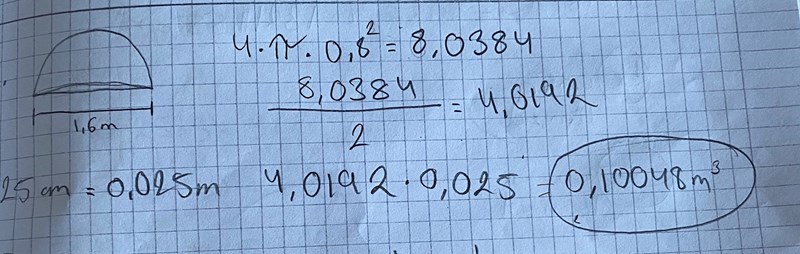 4·π·0,8²=8,0384
8,0384
2
= 4,0192
1,6m
25 cm = 0,025m 4,0192·0,025 = 0,10048m³